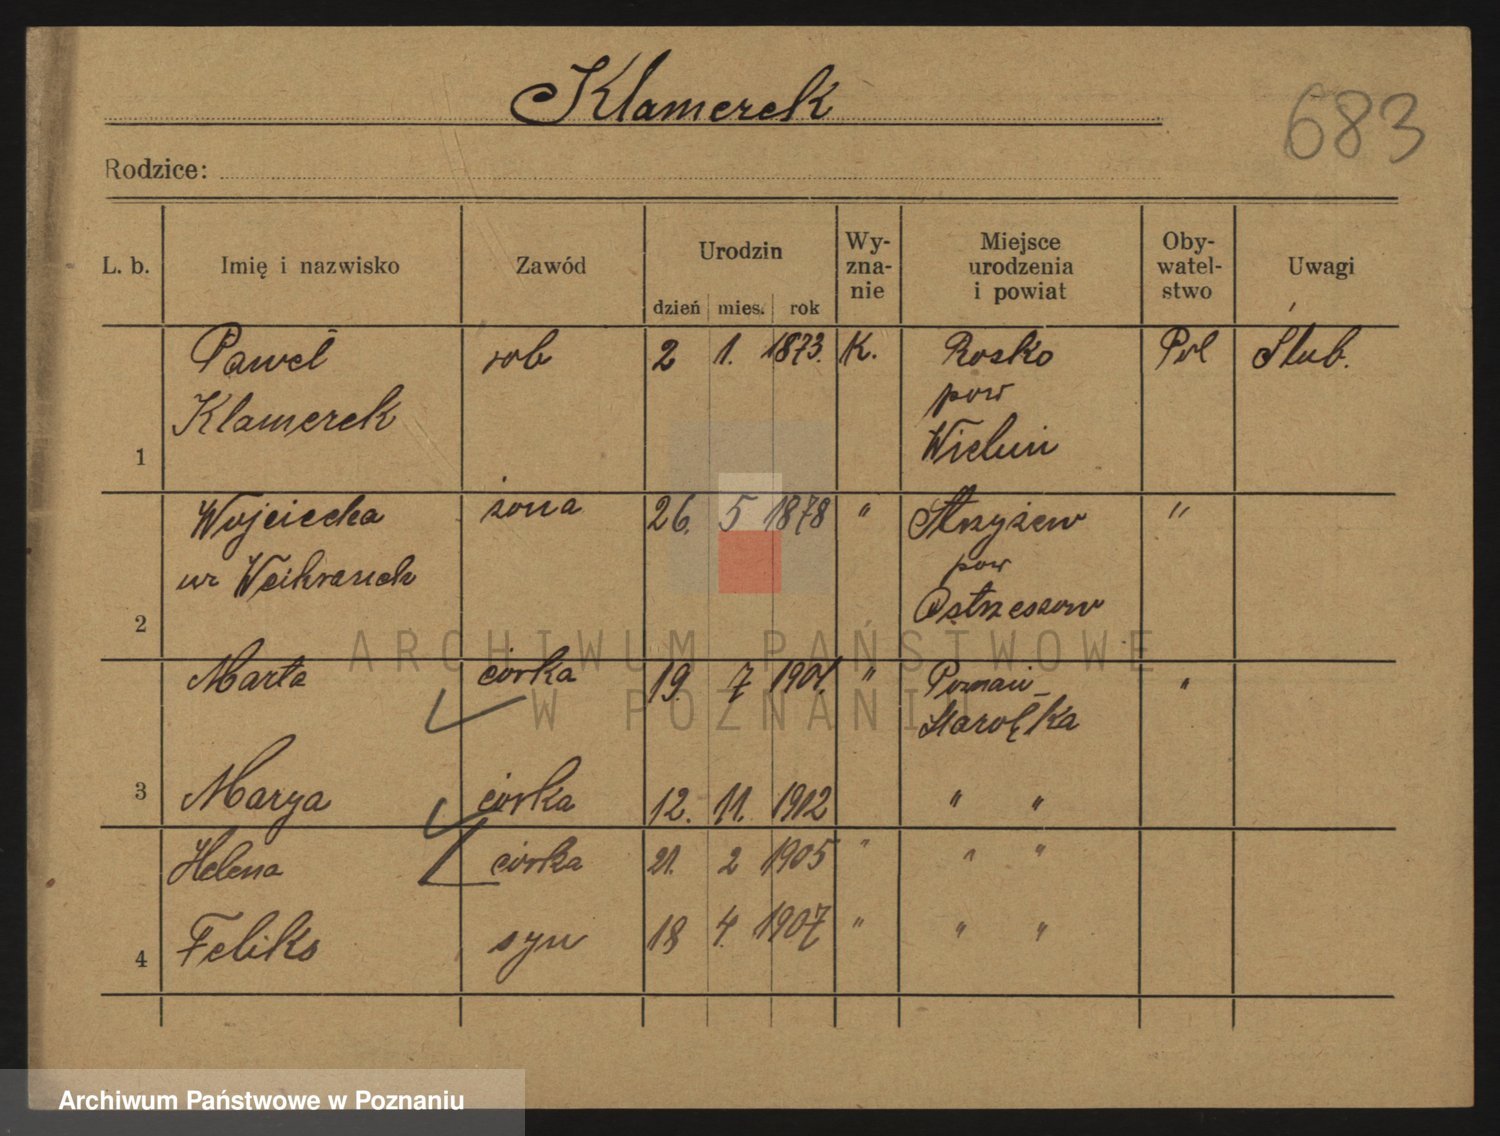 Klamerek
683
Rodzice:
L. b. Imię i nazwisko Zawód Urodzin dzień mies. rok Wy-zna-nie Miejsce urodzenia i powiat Oby-watel-stwo Uwagi
1 Paweł Klamerek rob 2 1. 1873. K. Rosko pow Wieluń Pol Ślub.
2 Wojciecha ur żona 26. 5 1878 " Strzyżew pow Ostrzeszow "
3 Marta córka 19. 7 1901. " Poznań - Starołęka "
Marya córka 12. 11. 1912 " "
Helena córka 21. 2 1905 " " "
4 Feliks syn 18 4. 1907 " " "
ARCHIWUM PAŃSTWOWE
W POZNANIU
Archiwum Państwowe w Poznaniu